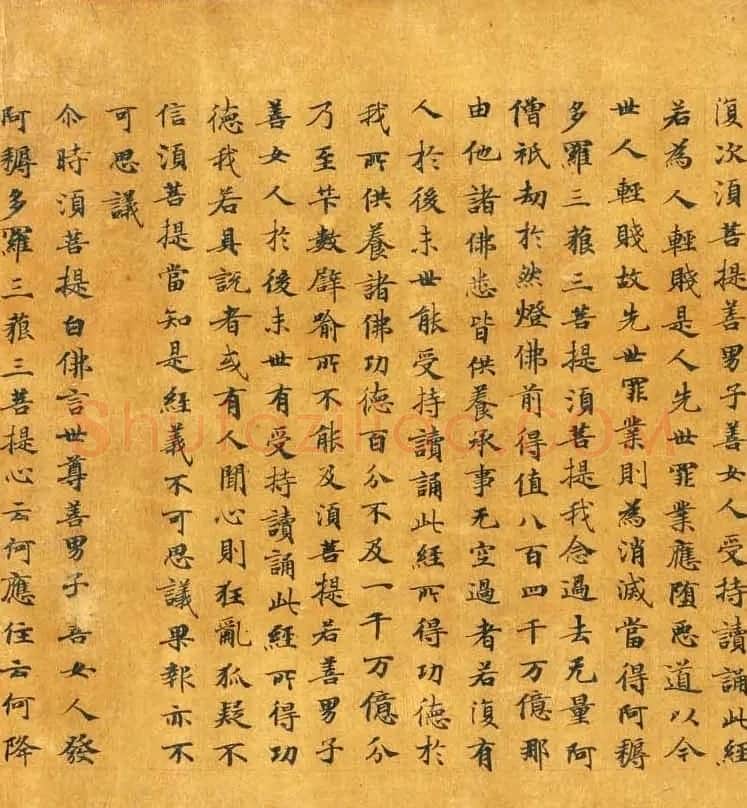 復次湏菩提善男子善女人受持讀誦此經
若為人輕賤是人先世罪業應墮惡道以今
世人輕賤故先世罪業則為消滅當得阿耨
多羅三藐三菩提湏菩提我念過去无量阿
僧祇劫於然燈佛前得值八百四千万億那
由他諸佛悉皆供養承事无空過者若復有
人於後末世能受持讀誦此經所得功德於
我所供養諸佛功德百分不及一千万億分
乃至筭數譬喻所不能及湏菩提若善男子
善女人於後末世有受持讀誦此經所得功
德我若具說者或有人聞心則狂亂狐疑不
信湏菩提當知是經義不可思議果報亦不
可思議
尒時湏菩提白佛言世尊善男子善女人發
阿耨多羅三藐三菩提心云何應住云何降